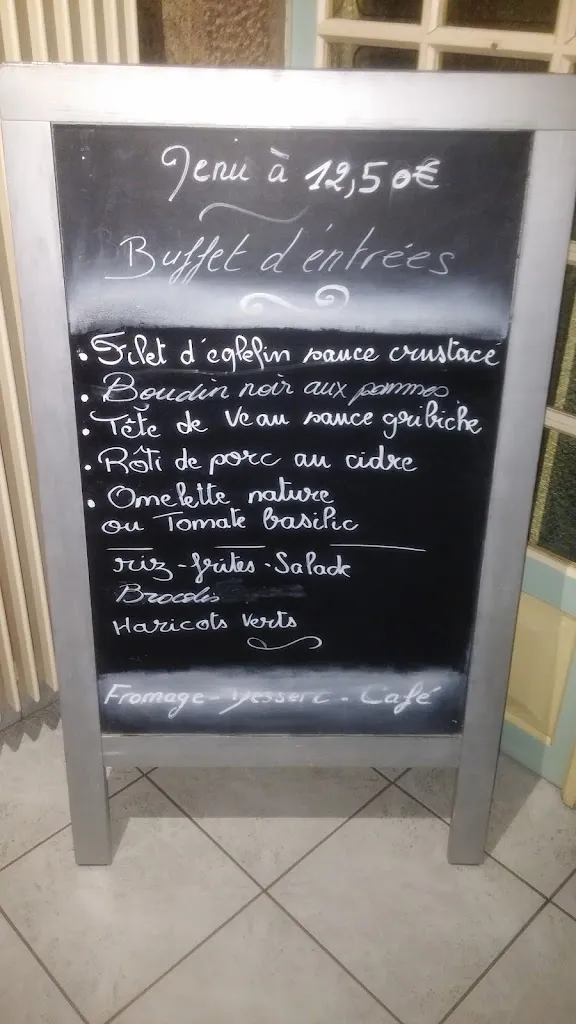 Menu à 12,50€
Buffet d'entrées
• Filet d'eglefin sauce crustacé
• Boudin noir aux pommes
• Tête de Veau sauce gribiche
• Rôti de porc au cidre
• Omelette nature
ou Tomate basilic
riz - frites - Salade
Brocolis
Haricots Verts
Fromage - Dessert - Café